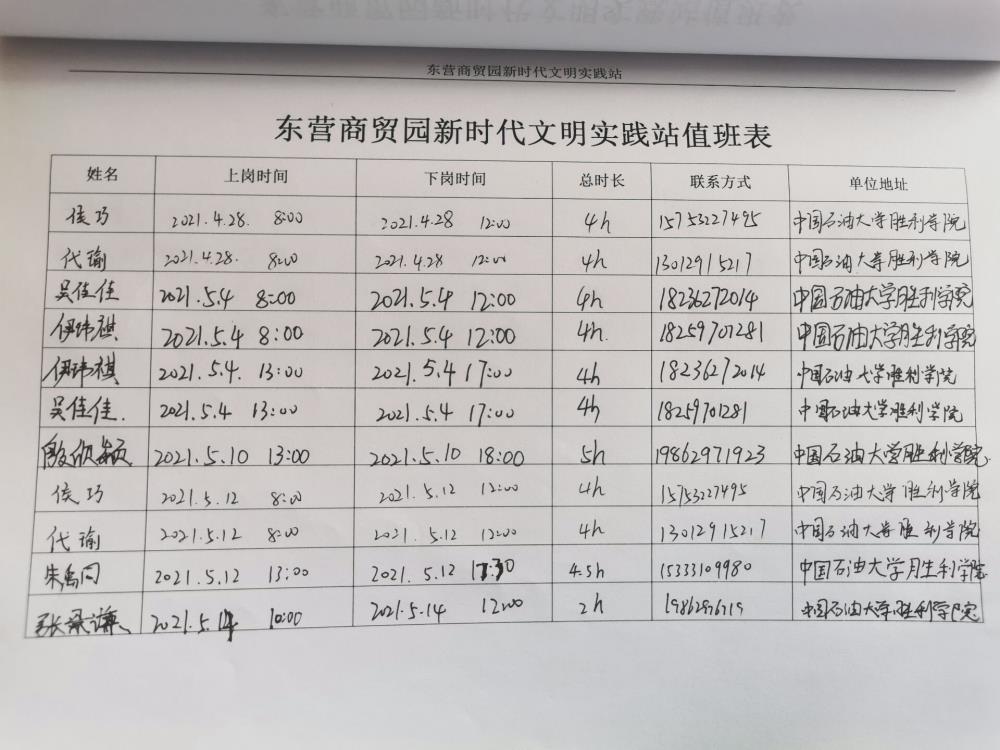 东营商贸园新时代文明实践站
东营商贸园新时代文明实践站值班表
姓名 上岗时间 下岗时间 总时长 联系方式 单位地址
侯巧 2021.4.28. 8:00 2021.4.28 12:00 4h 15753227495 中国石油大学胜利学院
代瑜 2021.4.28. 8:00 2021.4.28 12:00 4h 13012915217 中国石油大学胜利学院
吴佳佳 2021.5.4 8:00 2021.5.4 12:00 4h 18236272014 中国石油大学胜利学院
伊玮祺 2021.5.4 8:00 2021.5.4 12:00 4h. 18259701281 中国石油大学胜利学院
伊玮祺 2021.5.4. 13:00 2021.5.4 17:00 4h 18236272014 中国石油大学胜利学院
吴佳佳. 2021.5.4 13:00 2021.5.4 17:00 4h 18259701281 中国石油大学胜利学院
殷欣颖 2021.5.10 13:00 2021.5.10 18:00 5h 19862971923 中国石油大学胜利学院
侯巧 2021.5.12 8:00 2021.5.12 12:00 4h 15753227495 中国石油大学胜利学院
代瑜 2021.5.12 8:00 2021.5.12 12:00 4h 13012915217 中国石油大学胜利学院
朱禹同 2021.5.12 13:00 2021.5.12 17:30 4.5h 15333109980 中国石油大学胜利学院
张 谦 2021.5.14 10:00 2021.5.14 12:00 2h 中国石油大学胜利学院